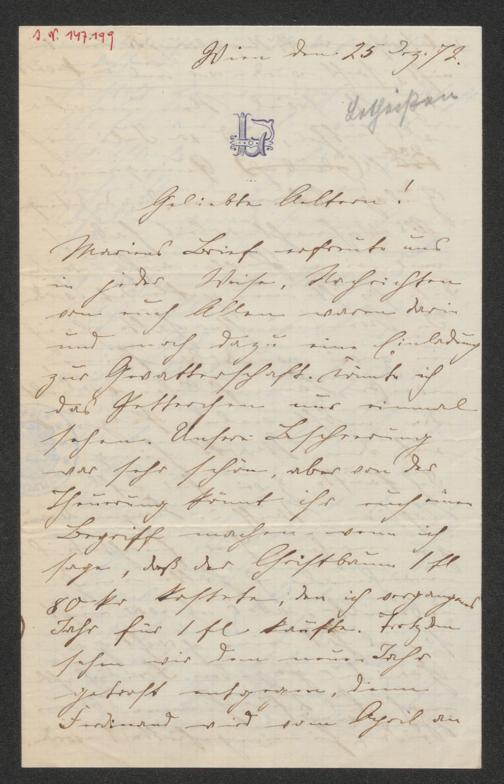 J. N. 147.199
Wien den 25 Dez. 72.
Lotheißen
L
Geliebte Aeltern!
Mariens Brief erfreute uns
in jeder Weise, Nachrichten
von euch Allen waren darin
und noch dazu eine Einladung
zur Gevatterschaft. Könnte ich
das Getterchen nur einmal
sehen. Unsere Bescheerung
war sehr schön, aber von der
Theuerung könnt ihr euch einen
Begriff machen, wenn ich
sage, daß der Christbaum 1 fl
80 kr kostete, den ich vergangenes
Jahr für 1 fl kaufte. Trotzdem
sehen wir dem neuen Jahr
getrost entgegen, denn
Ferdinand wird vom April an